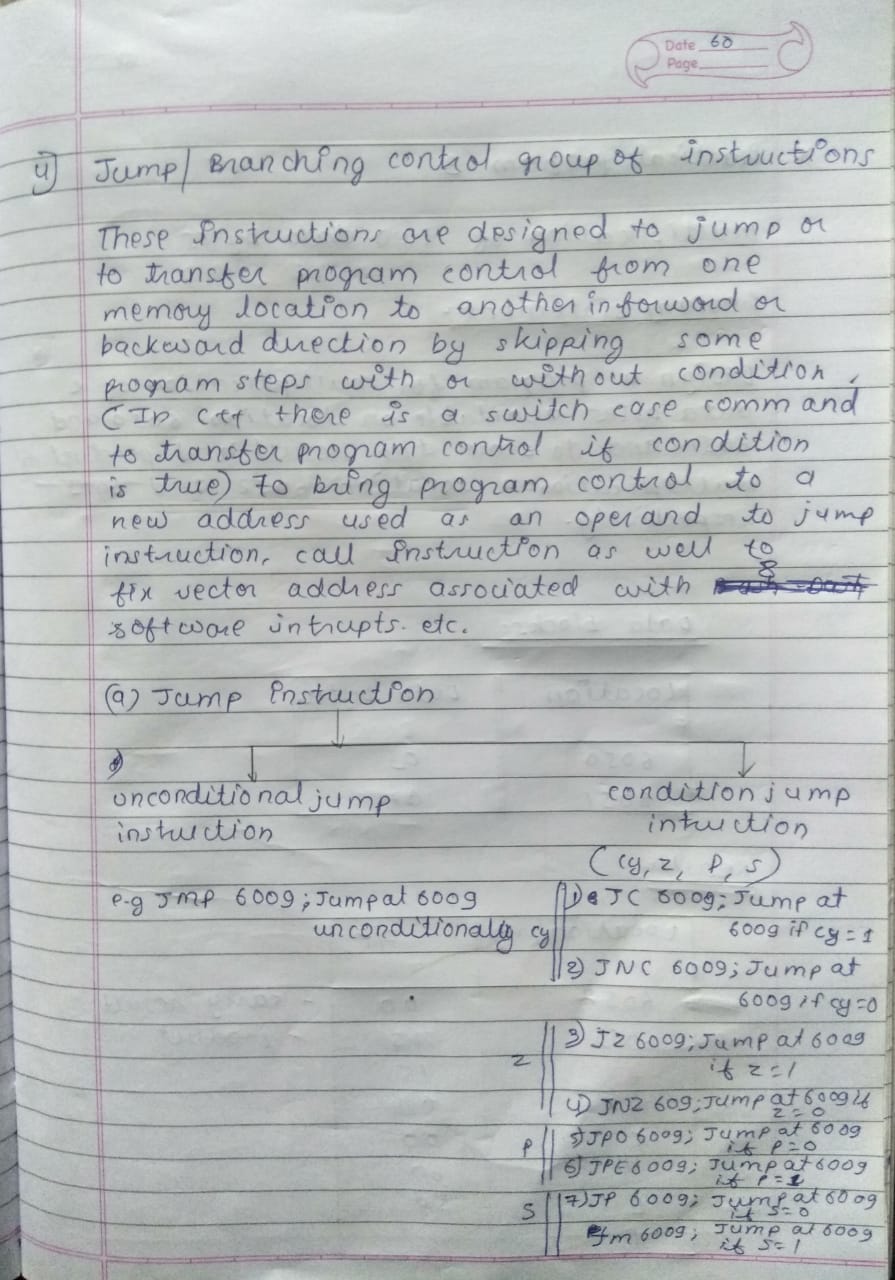 Date 60
Page
4) Jump/ Branching control group of instructions
These instructions are designed to jump or
to transfer program control from one
memory location to another in forword or
backword direction by skipping some
program steps with or without condition.
(In C++ there is a switch case command
to transfer program control if condition
is true) To bring program control to a
new address used as an operand to jump
instruction, call instruction as well to
fix vector address associated with 8
software intrupts. etc.
(a) Jump instruction
unconditional jump
instruction
condition jump
intruction
(cy, z, P, S)
e.g JMP 6009; Jump at 6009
unconditionally
cy
1) JC 6009; Jump at
6009 if cy = 1
2) JNC 6009; Jump at
6009 if cy=0
z
3) JZ 6009; Jump at 6009
if z = 1
4) JNZ 609; Jump at 6009 if
z = 0
P
5) JPO 6009; Jump at 6009
if P = 0
6) JPE 6009; Jump at 6009
if P = 1
S
7) JP 6009; Jump at 6009
if S = 0
Jm 6009; Jump at 6009
if S = 1